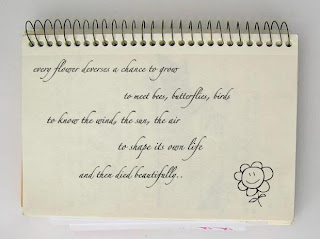 every flower deverses a chance to grow
to meet bees, butterflies, birds
to know the wind, the sun, the air
to shape its own life
and then died beautifully..